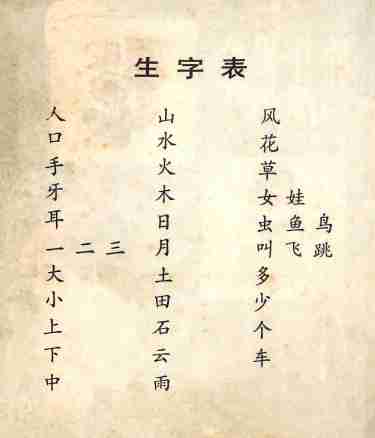 生字表
人
口
手
牙
耳
一 二 三
大
小
上
下
中
山
水
火
木
日
月
土
田
石
云
雨
风
花
草
女 娃
虫 鱼 鸟
叫 飞 跳
多
少
个
车